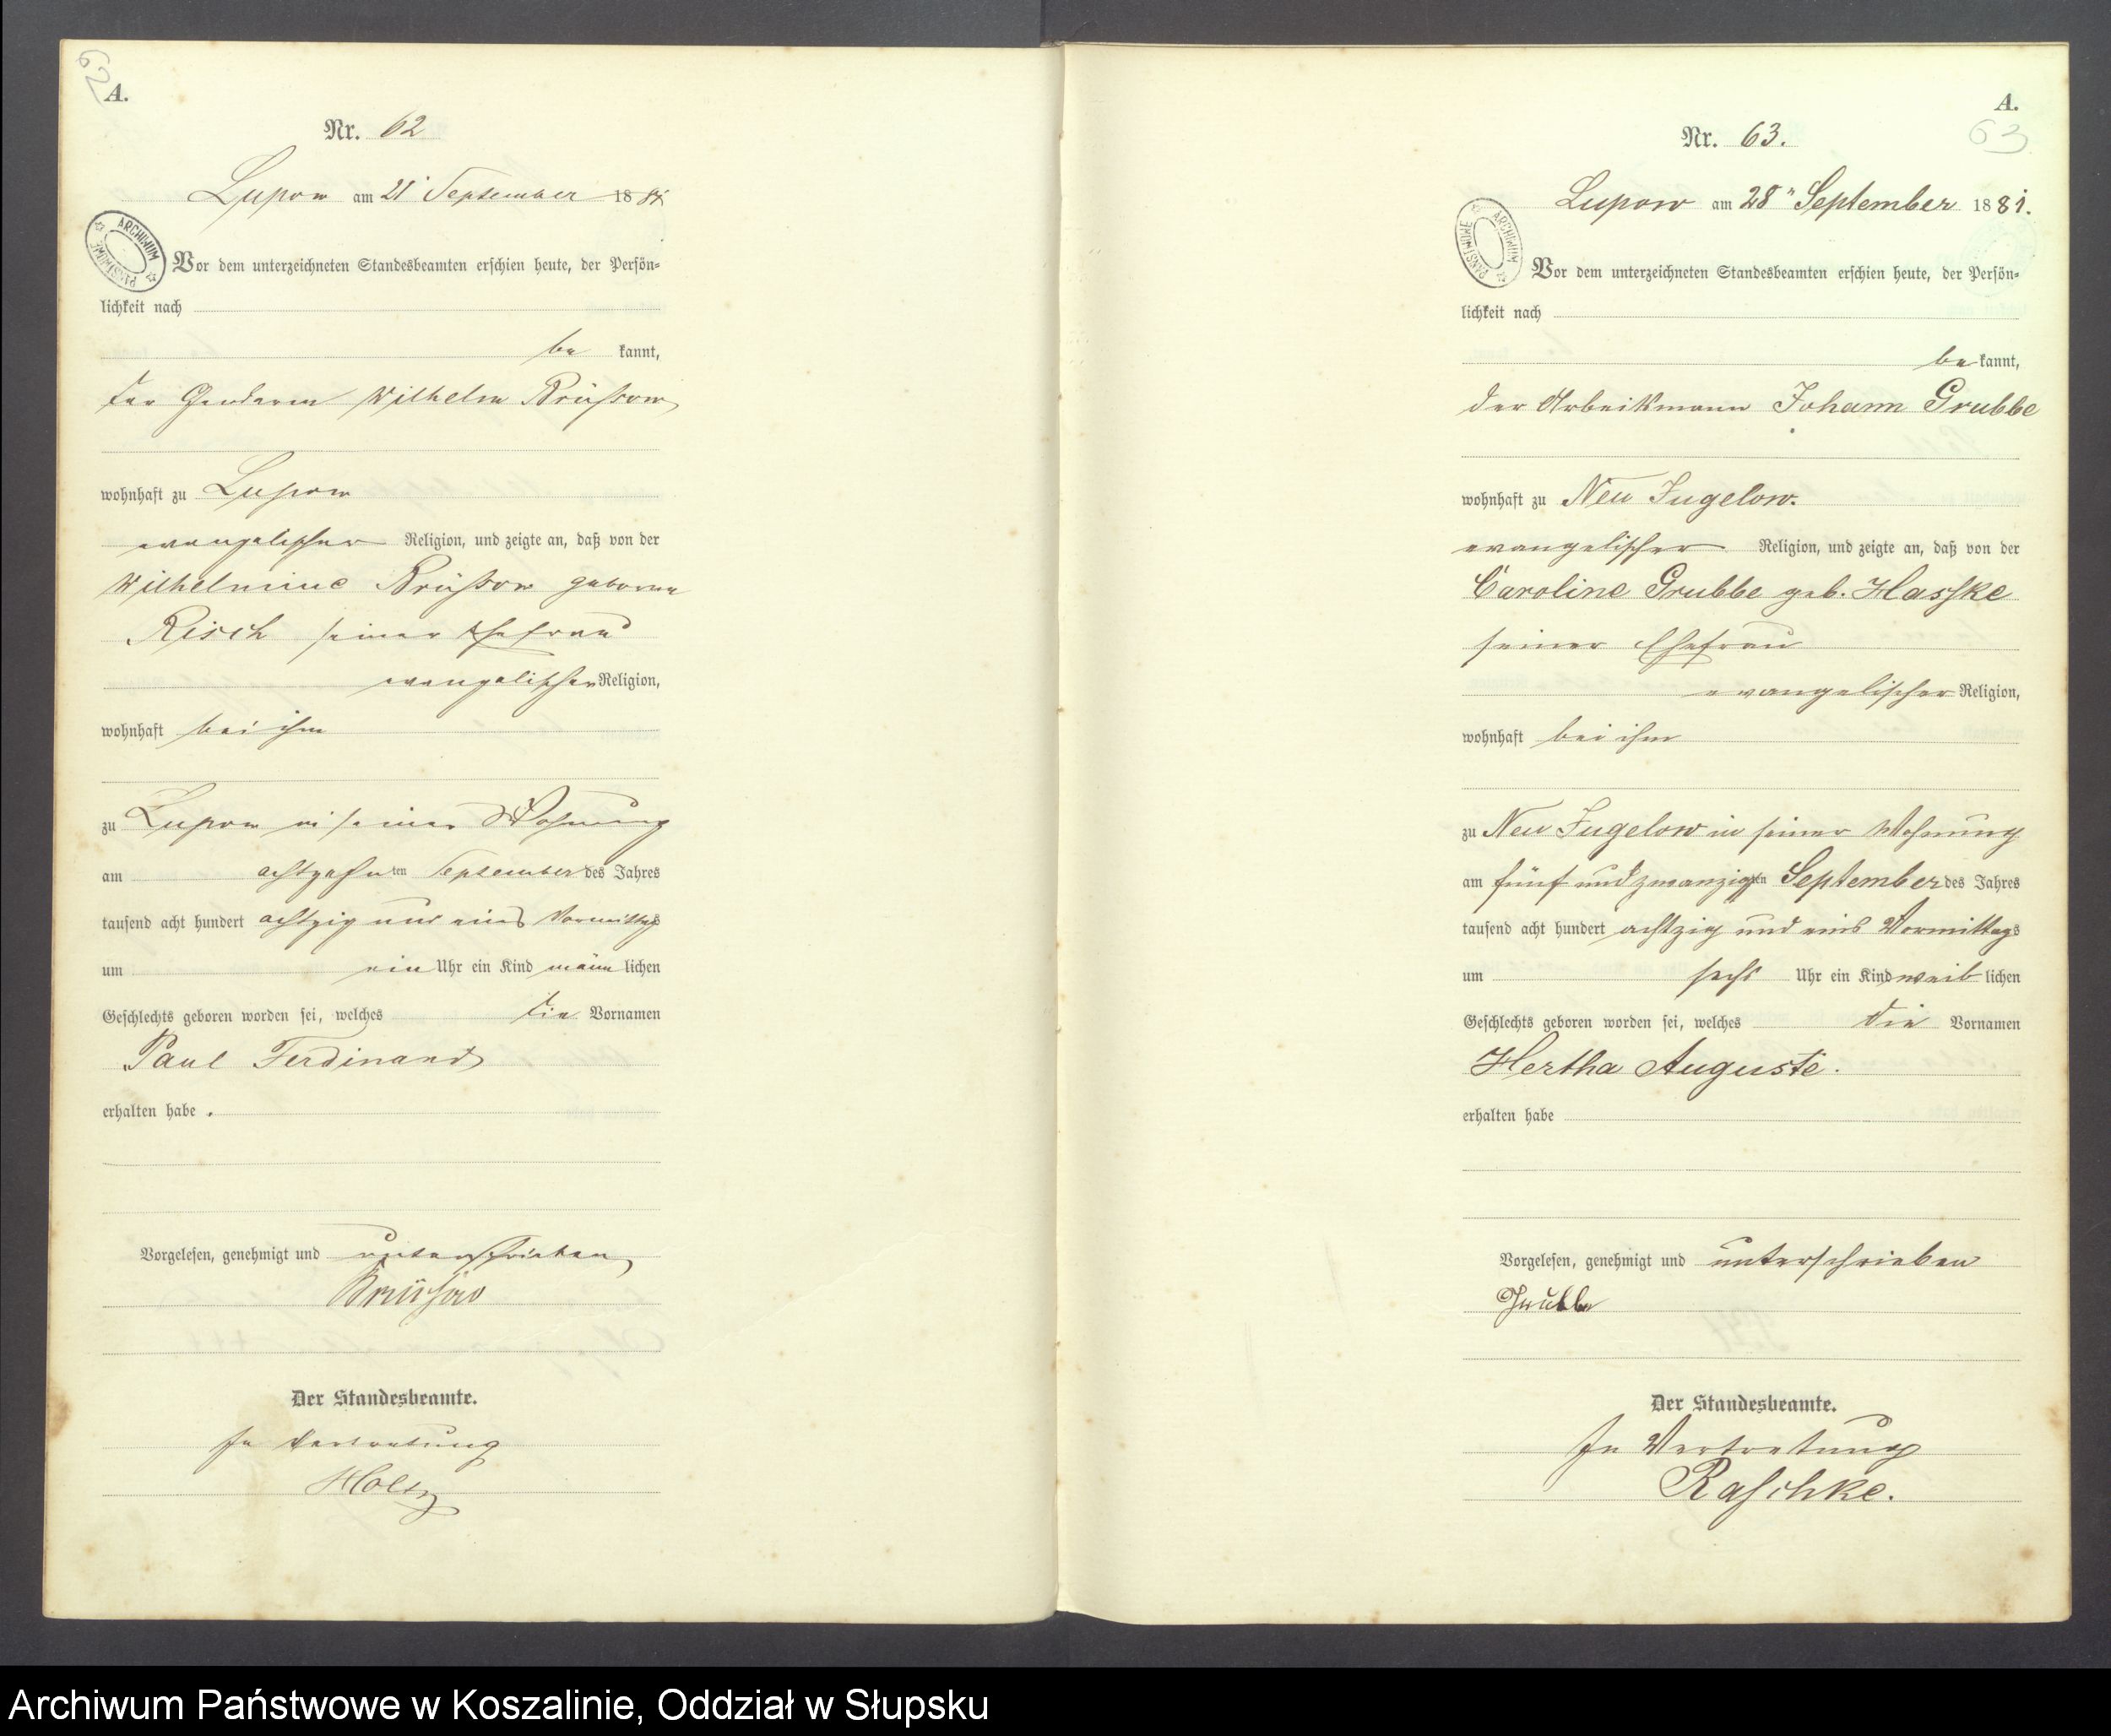 62
A.
Nr. 62
Lupow am 21t September 1881
ARCHIWUM PAŃSTWOWE
Vor dem unterzeichneten Standesbeamten erschien heute, der Persön=
lichkeit nach
be kannt,
der Gendarm Wilhelm Brüssow
wohnhaft zu Lupow
evangelischer Religion, und zeigte an, daß von der
Wilhelmine Brüssow geborne
Risch seiner Ehefrau
evangelischer Religion,
wohnhaft bei ihm
zu Lupow in seiner Wohnung
am achtzehnten September des Jahres
tausend acht hundert achtzig und eins Vormittags
um ein Uhr ein Kind männlichen
Geschlechts geboren worden sei, welches die Vornamen
Paul Ferdinand
erhalten habe.
Vorgelesen, genehmigt und unterschrieben
Brüssow
Der Standesbeamte.
In Vertretung
Holtz
A.
63
Nr. 63.
Lupow am 28n September 1881.
ARCHIWUM PAŃSTWOWE
Vor dem unterzeichneten Standesbeamten erschien heute, der Persön=
lichkeit nach
be kannt,
der Arbeitsmann Johann Grubbe
wohnhaft zu Neu Jugelow.
evangelischer Religion, und zeigte an, daß von der
Caroline Grubbe geb. Hasske
seiner Ehefrau
evangelischer Religion,
wohnhaft bei ihm
zu Neu Jugelow in seiner Wohnung
am fünf und zwanzigsten September des Jahres
tausend acht hundert achtzig und eins Vormittags
um sechs Uhr ein Kind weiblichen
Geschlechts geboren worden sei, welches die Vornamen
Hertha Auguste.
erhalten habe
Vorgelesen, genehmigt und unterschrieben
Grubbe
Der Standesbeamte.
In Vertretung
Raschke.
Archiwum Państwowe w Koszalinie, Oddział w Słupsku